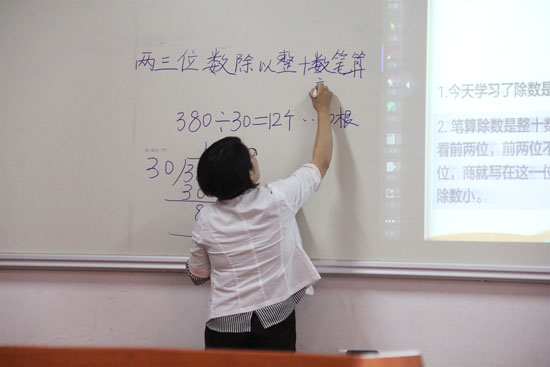 两三位数除以整十数笔算
380÷30=12个…
30
30
8
1.今天学习了除数是
2. 笔算除数是整十数
看前两位，前两位不
位，商就写在这一位
除数小。